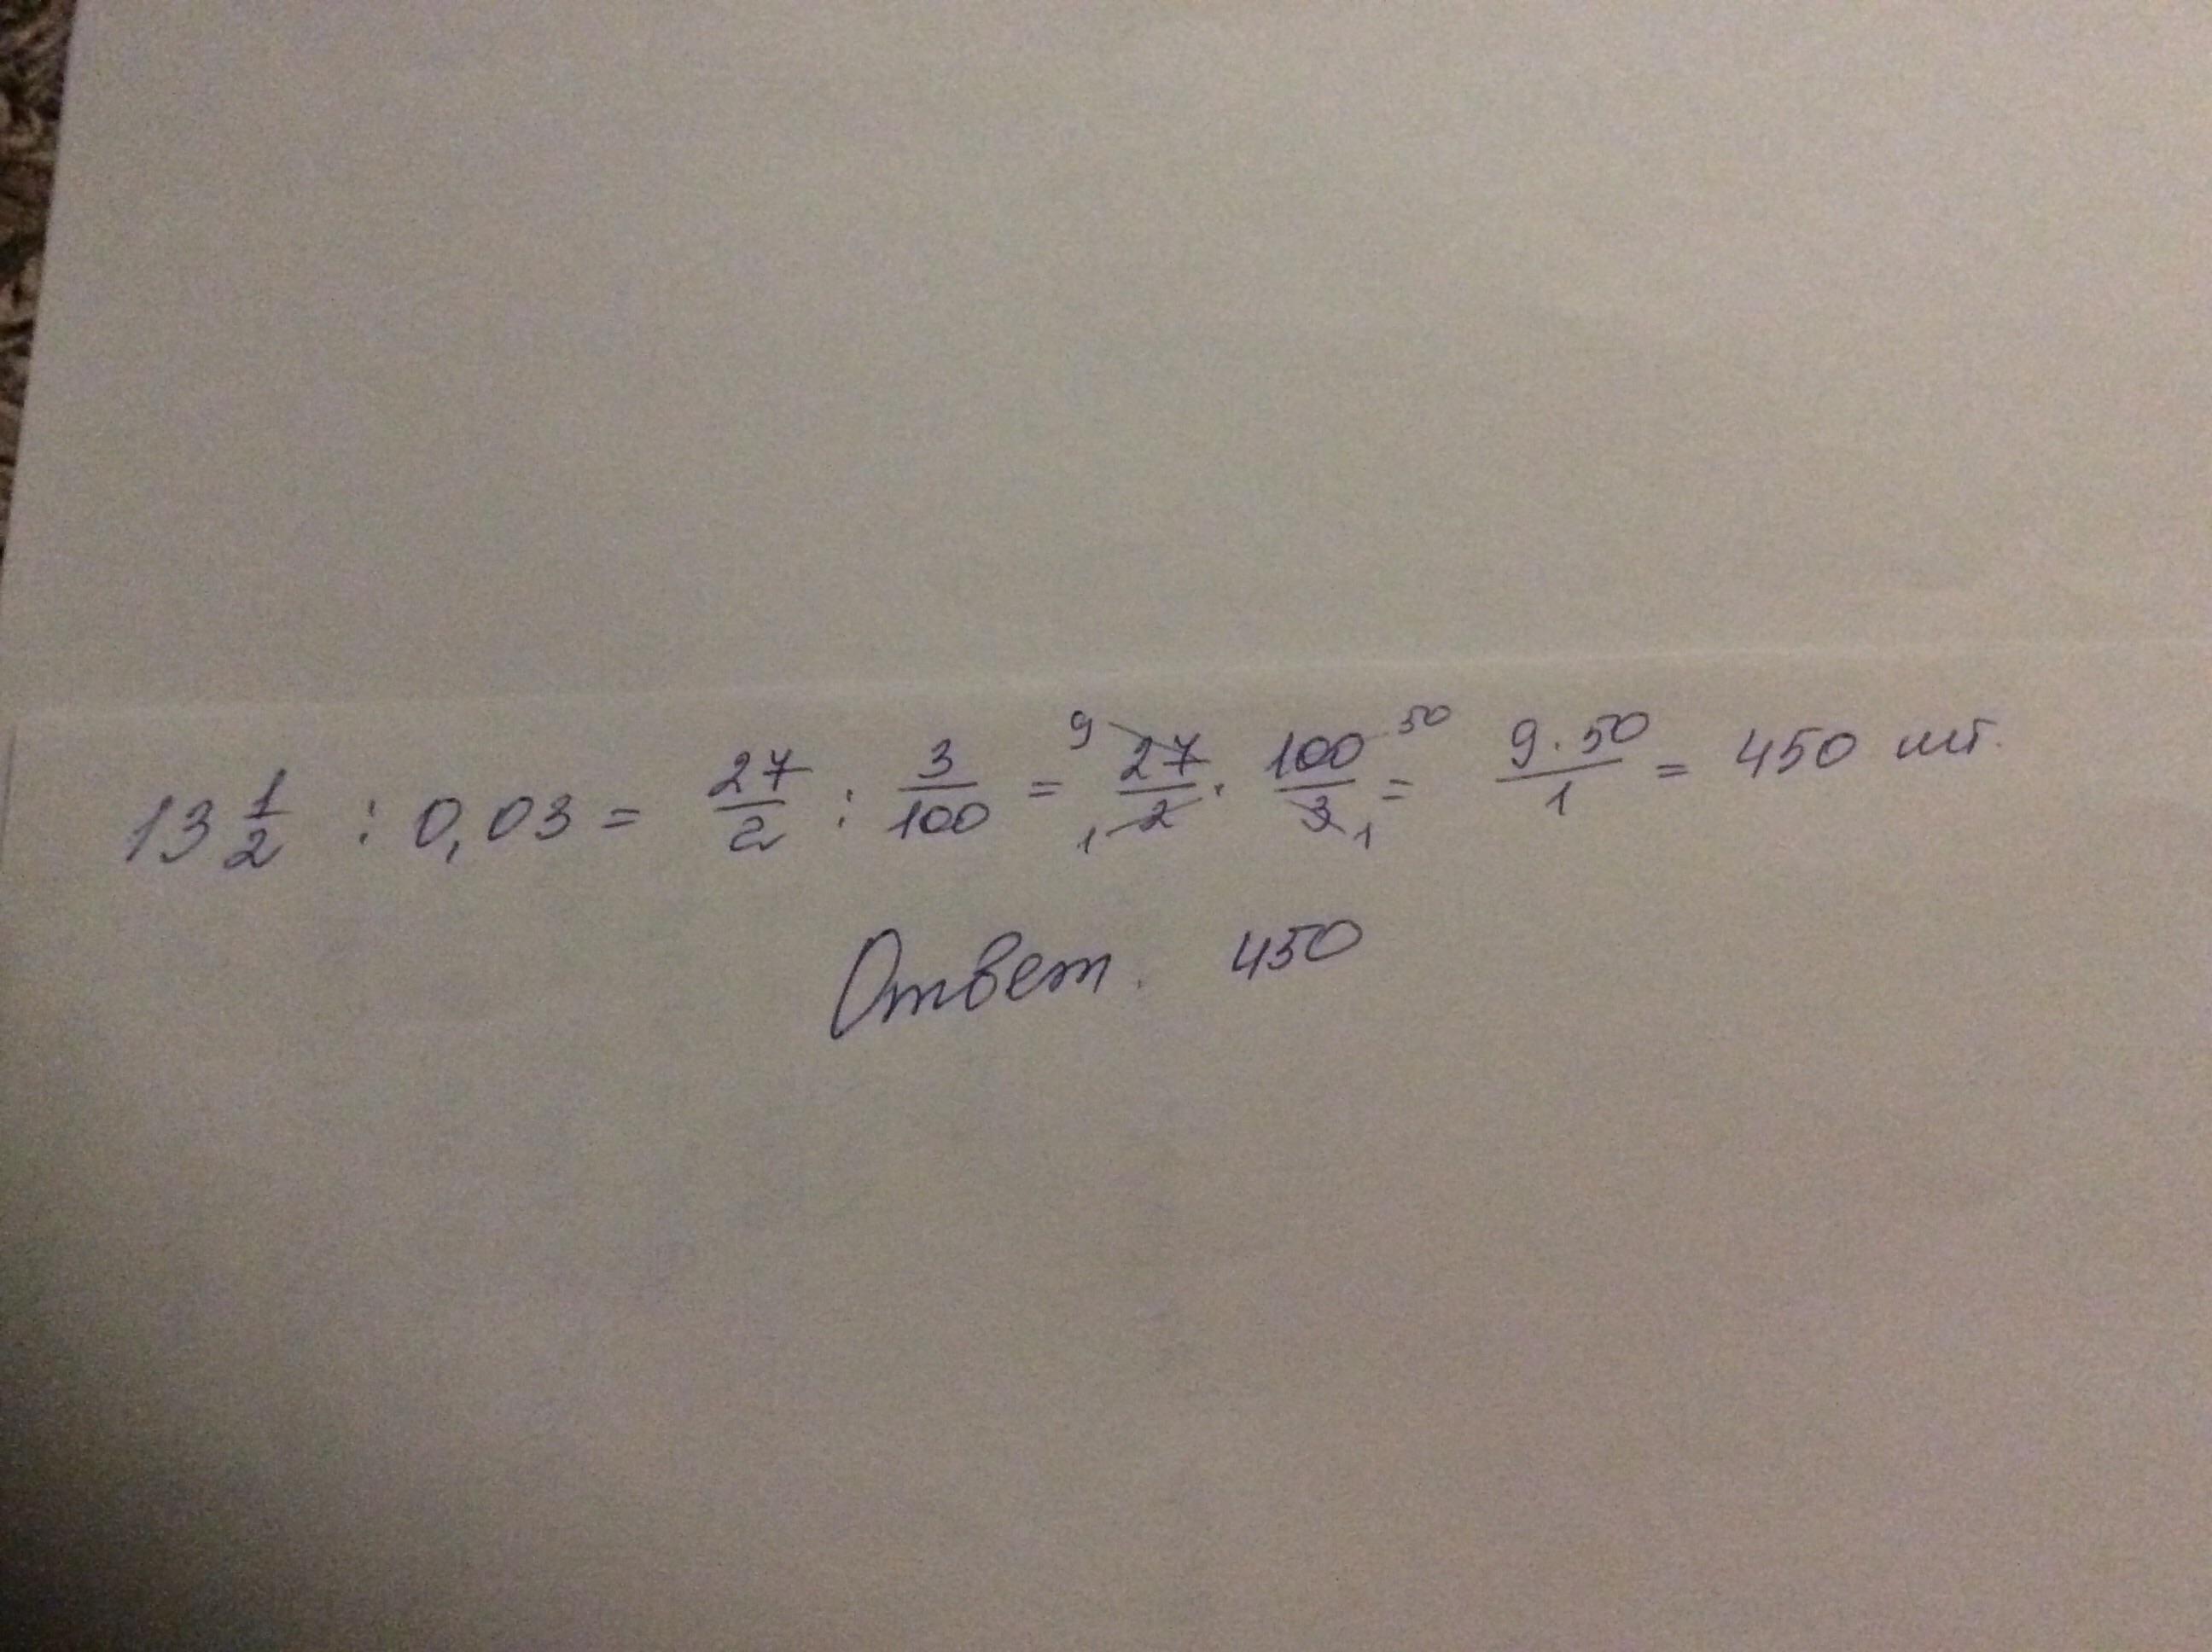 13 1/2 : 0,03 = 27/2 : 3/100 = 9 27/2 1 · 100/3 50 1 = 9·50/1 = 450 шт.
Ответ. 450